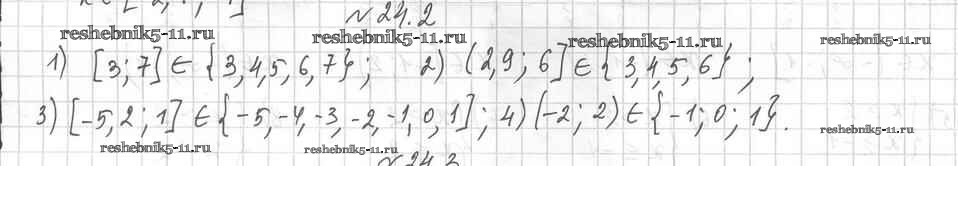 №24.2
reshebnik5-11.ru reshebnik5-11.ru reshebnik5-11.ru reshebnik5-11.ru
1) [3; 7] ∈ {3, 4, 5, 6, 7}; 2) (2,9; 6] ∈ {3, 4, 5, 6};
3) [-5,2; 1] ∈ {-5, -4, -3, -2, -1, 0, 1]; 4) (-2; 2) ∈ {-1; 0; 1}.
reshebnik5-11.ru reshebnik5-11.ru reshebnik5-11.ru